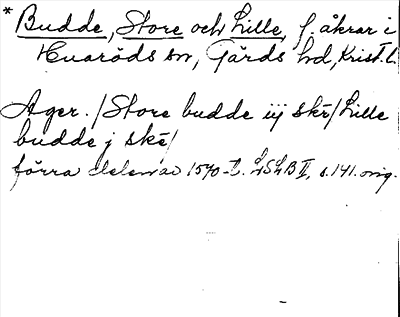 * Budde, Store och Lille, f. åkrar i
Huaröds sn, Gärds hd, Krist. l.
Ager. / Store budde iij skě / Lille
budde j skě /
förra delen av 1570-t. LSLB II, s. 141. orig.